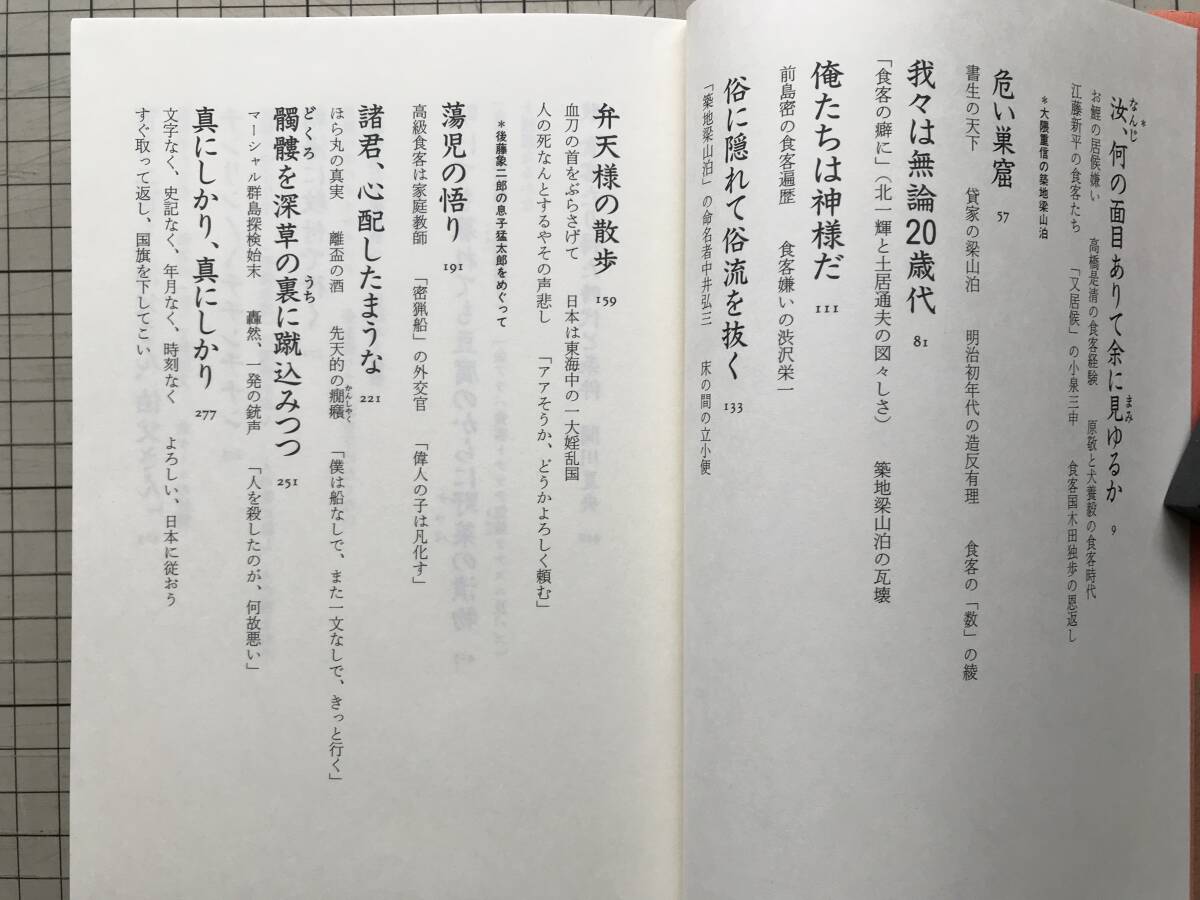 汝、何の面目ありて余に見ゆるか 9
なんじ まみ
お鯉の居候嫌い 高橋是清の食客経験 原敬と犬養毅の食客時代
江藤新平の食客たち 「又居候」の小泉三申 食客国木田独歩の恩返し
*大隈重信の築地梁山泊
危い巣窟 57
書生の天下 貸家の梁山泊 明治初年代の造反有理 食客の「数」の綾
我々は無論20歳代 81
「食客の癖に」(北一輝と土居通夫の図々しさ) 築地梁山泊の瓦壊
俺たちは神様だ 111
前島密の食客遍歴 食客嫌いの渋沢栄一
俗に隠れて俗流を抜く 133
「築地梁山泊」の命名者中井弘三 床の間の立小便
弁天様の散歩 159
血刀の首をぶらさげて 日本は東海中の一大婬乱国
人の死なんとするやその声悲し 「アアそうか、どうかよろしく頼む」
*後藤象二郎の息子猛太郎をめぐって
蕩児の悟り 191
高級食客は家庭教師 「密猟船」の外交官 「偉人の子は凡化す」
諸君、心配したまうな 221
ほら丸の真実 離盃の酒 先天的の癇癪 「僕は船なしで、また一文なしで、きっと行く」
かんしゃく
髑髏を深草の裏に蹴込みつつ 251
どくろ うち
マーシャル群島探検始末 轟然、一発の銃声 「人を殺したのが、何故悪い」
真にしかり、真にしかり 277
文字なく、史記なく、年月なく、時刻なく よろしい、日本に従おう
すぐ取って返し、国旗を下してこい